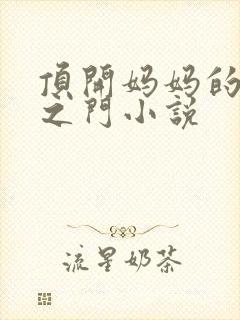 頂開妈妈的
之門小説
流星奶茶